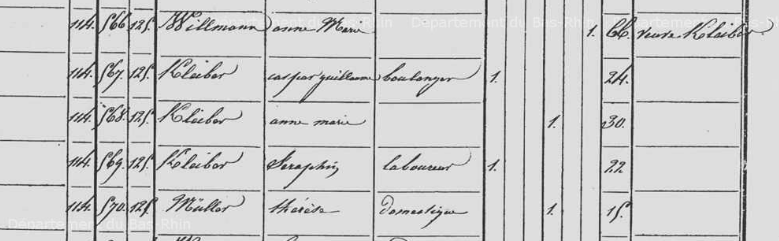 Département du Bas-Rhin Département du Bas-Rhin
114. 566. 125. Willmann anne Marie 1. 66. veuve Kleiber
114. 567. 125. Kleiber caspar guillaume boulanger 1. 24.
114. 568. 125. Kleiber anne marie 1. 30.
114. 569. 125. Kleiber Seraphin laboureur 1. 22
114. 570. 125. Müller thérèse domestique 1. 15.
Département du Bas-Rhin